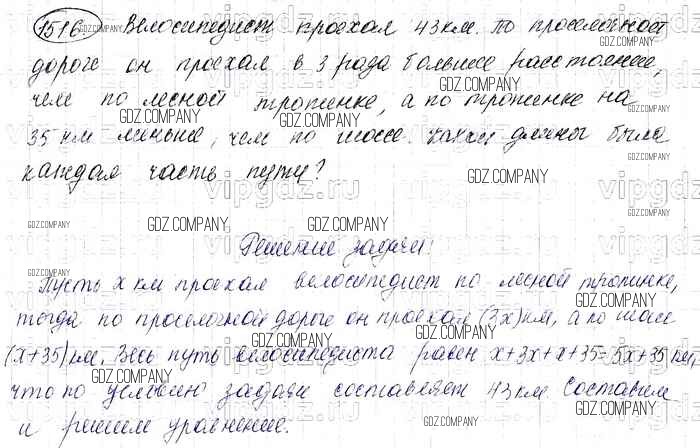 1516. Велосипедист проехал 43 км. По проселочной
дороге он проехал в 3 раза большее расстояние,
чем по лесной тропинке, а по тропинке на
35 км меньше, чем по шоссе. Какой длины была
каждая часть пути?
Решение задачи:
Пусть x км проехал велосипедист по лесной тропинке,
тогда по проселочной дороге он проехал (3x) км, а по шоссе
(x+35) км. Весь путь велосипедиста равен x+3x+x+35=5x+35 км,
что по условию задачи составляет 43 км. Составим
и решим уравнение.
GDZ.COMPANY
vipgdz.ru